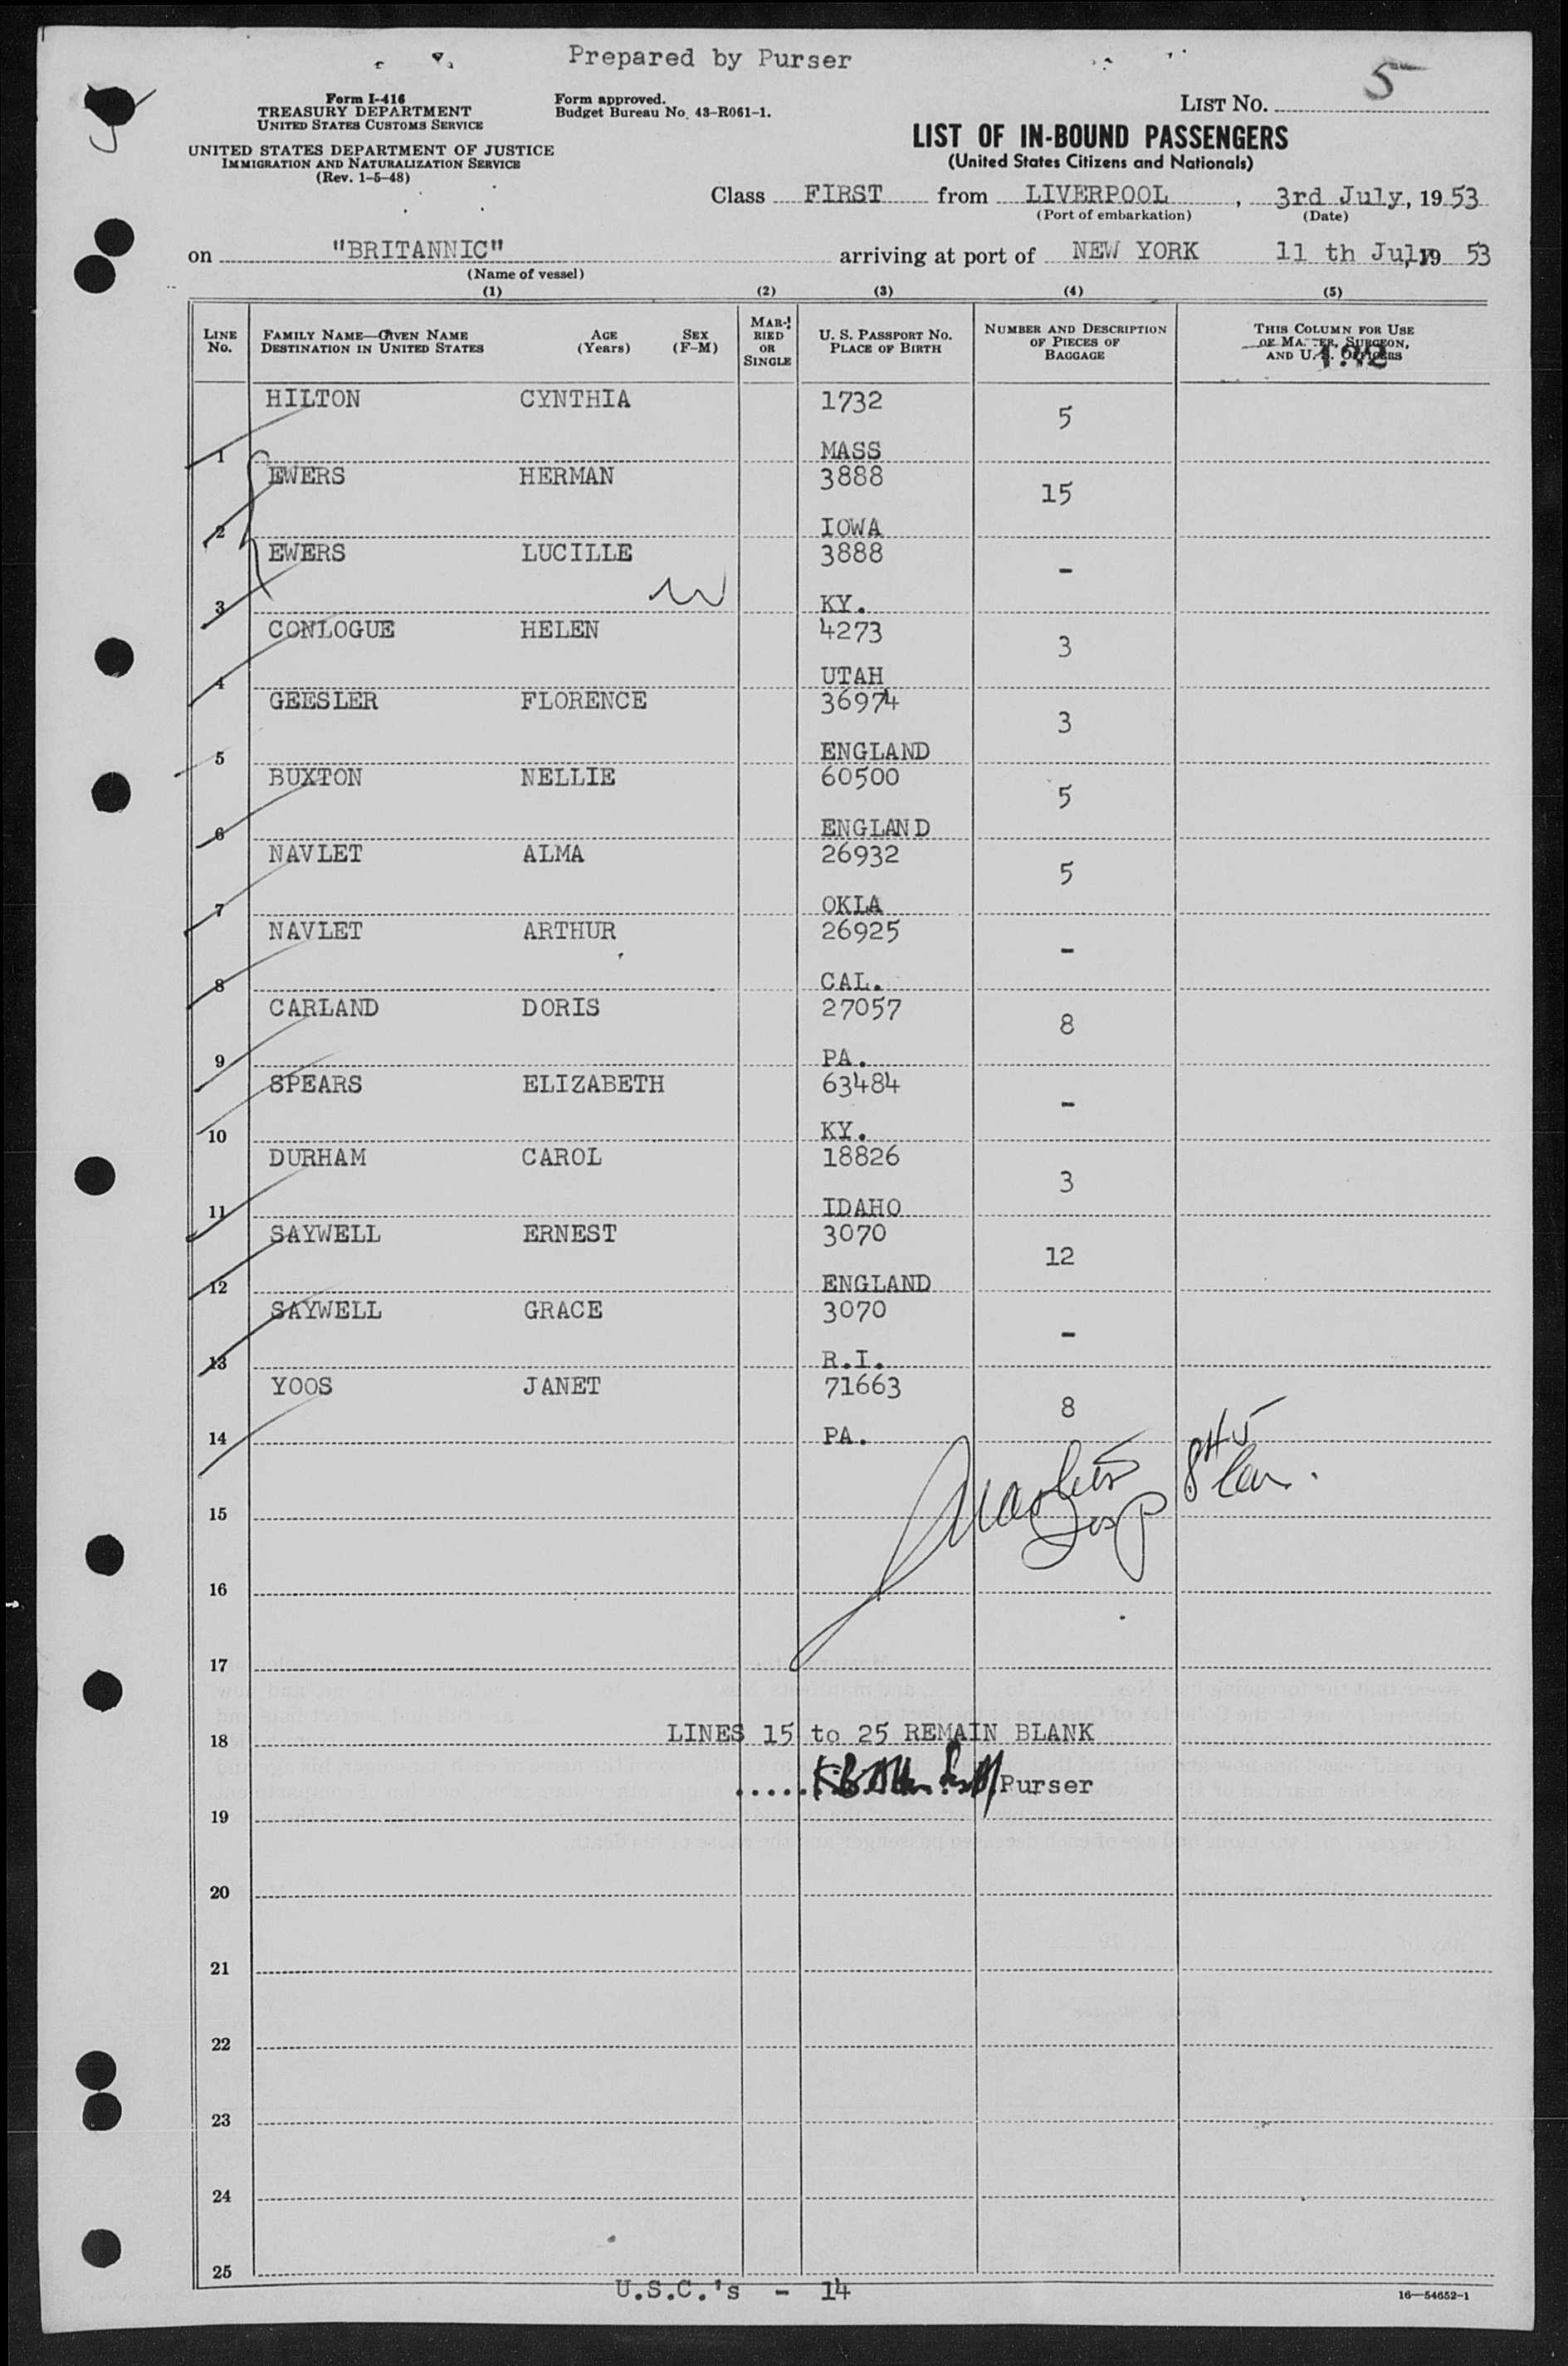 Prepared by Purser
5
Form I-416
TREASURY DEPARTMENT
UNITED STATES CUSTOMS SERVICE
Form approved.
Budget Bureau No. 43-R061-1.
LIST NO.
UNITED STATES DEPARTMENT OF JUSTICE
IMMIGRATION AND NATURALIZATION SERVICE
(Rev. 1-5-48)
LIST OF IN-BOUND PASSENGERS
(United States Citizens and Nationals)
Class FIRST from LIVERPOOL, 3rd July, 1953
(Port of embarkation) (Date)
on "BRITANNIC" arriving at port of NEW YORK 11 th July, 19 53
(Name of vessel)
(1) (2) (3) (4) (5)
LINE No. FAMILY NAME—GIVEN NAME DESTINATION IN UNITED STATES AGE (Years) SEX (F-M) MARRIED OR SINGLE U. S. PASSPORT NO. PLACE OF BIRTH NUMBER AND DESCRIPTION OF PIECES OF BAGGAGE THIS COLUMN FOR USE OF MASTER, SURGEON, AND U. S. OFFICERS
HILTON CYNTHIA 1732 5
1 MASS
EWERS HERMAN 3888 15
2 IOWA
EWERS LUCILLE 3888 -
3 KY.
CONLOGUE HELEN 4273 3
4 UTAH
GEESLER FLORENCE 36974 3
5 ENGLAND
BUXTON NELLIE 60500 5
6 ENGLAND
NAVLET ALMA 26932 5
7 OKLA
NAVLET ARTHUR 26925 -
8 CAL.
CARLAND DORIS 27057 8
9 PA.
SPEARS ELIZABETH 63484 -
10 KY.
DURHAM CAROL 18826 3
11 IDAHO
SAYWELL ERNEST 3070 12
12 ENGLAND
SAYWELL GRACE 3070 -
13 R.I.
YOOS JANET 71663 8
14 PA.
15
16
17
18 LINES 15 to 25 REMAIN BLANK
Purser
19
20
21
22
23
24
25
U.S.C.'s - 14
16—54652-1